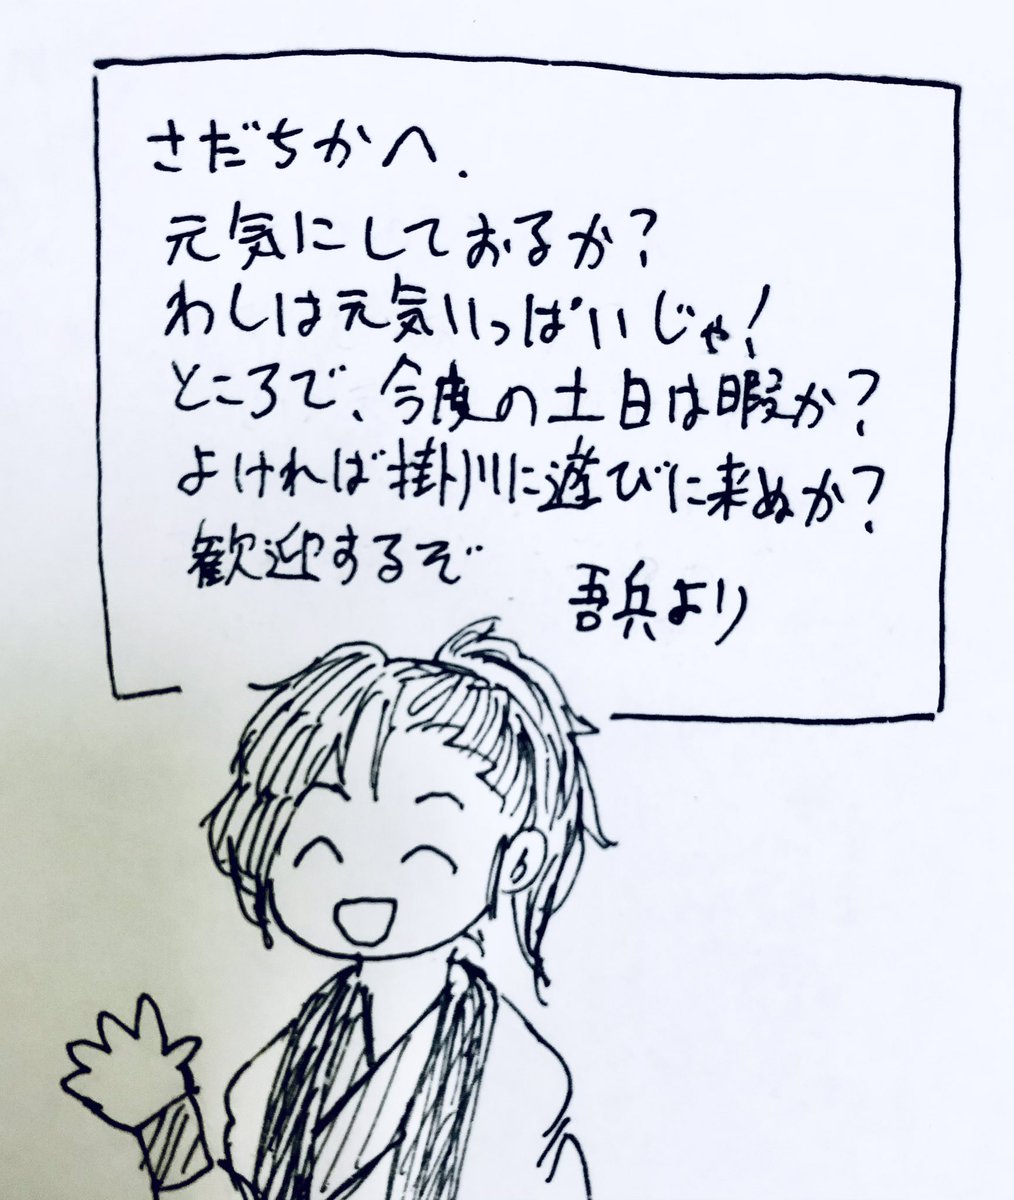 さだちかへ.
元気にしておるか?
わしは元気いっぱいじゃ!
ところで、今度の土日は暇か?
よければ掛川に遊びに来ぬか?
歓迎するぞ
吾兵より